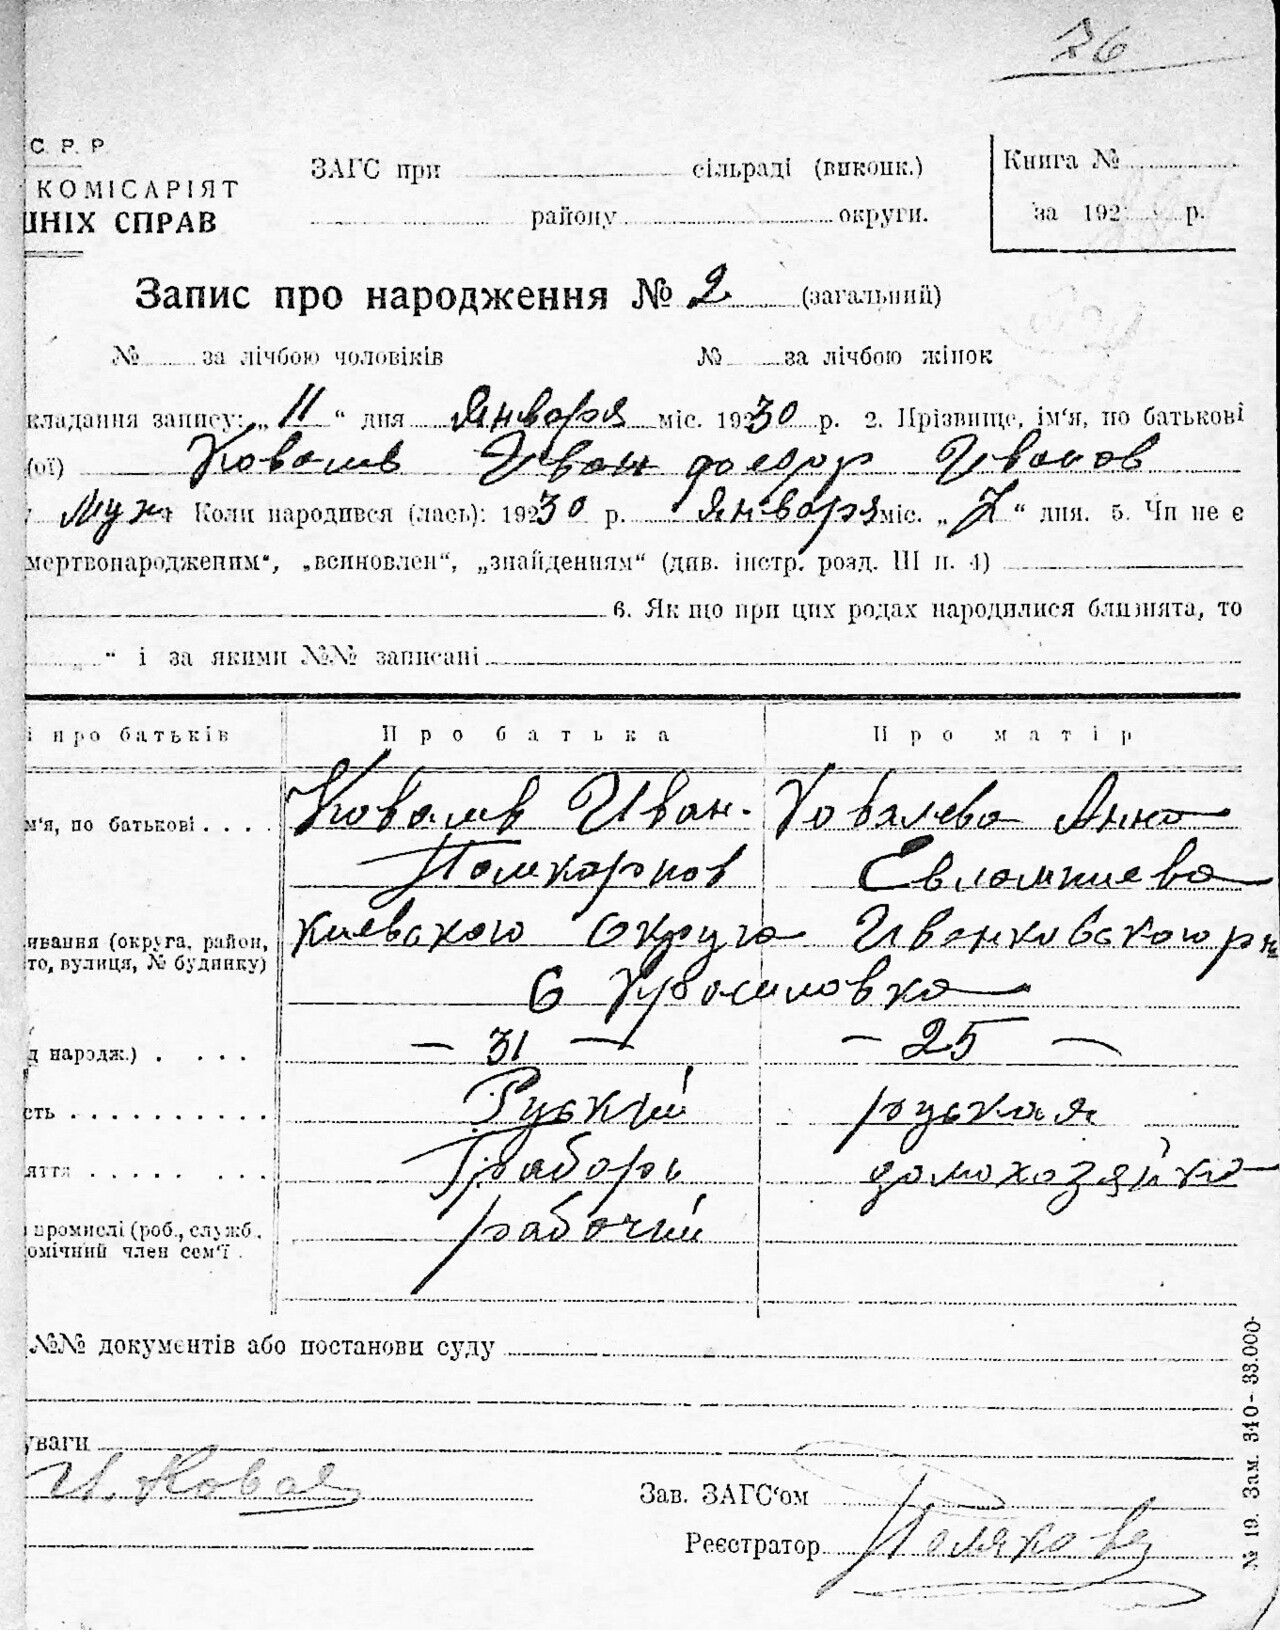 26
С. Р. Р.
КОМІСАРІЯТ
ШНІХ СПРАВ
ЗАГС при сільраді (виконк.)
району округи.
Книга №
за 192 р.
Запис про народження № 2 (загальний)
№ за лічбою чоловіків № за лічбою жінок
кладання запису: „11“ дня Января міс. 1930 р. 2. Прізвище, ім'я, по батькові
(ої) Коваль Иван Иванов
Муж Коли народився (лась): 1930 р. Января міс. „ “ дня. 5. Чи не є
мертвонародженим“, „всиновлен“, „знайденням“ (див. інстр. розд. III п. 4)
6. Як що при цих родах народилися близнята, то
“ і за якими №№ записані
і про батьків Про батька Про матір
м'я, по батькові . . . . Коваль Иван. Ковалева Анна
Поликарпов Евлампиева
ивання (округа, район, Киевского Округа Иванковского рн
то, вулиця, № будинку)
С
д народж.) . . . . — 31 — — 25 —
сть . . . . . . . . . . Руский руская
яття . . . . . . . . Грабарь домохозяйка
промислі (роб., служб., рабочий
омічний член сем'ї .
№№ документів або постанови суду
уваги
И. Коваль
Зав. ЗАГС'ом
Реєстратор
№ 19. Зам. 340 – 33.000